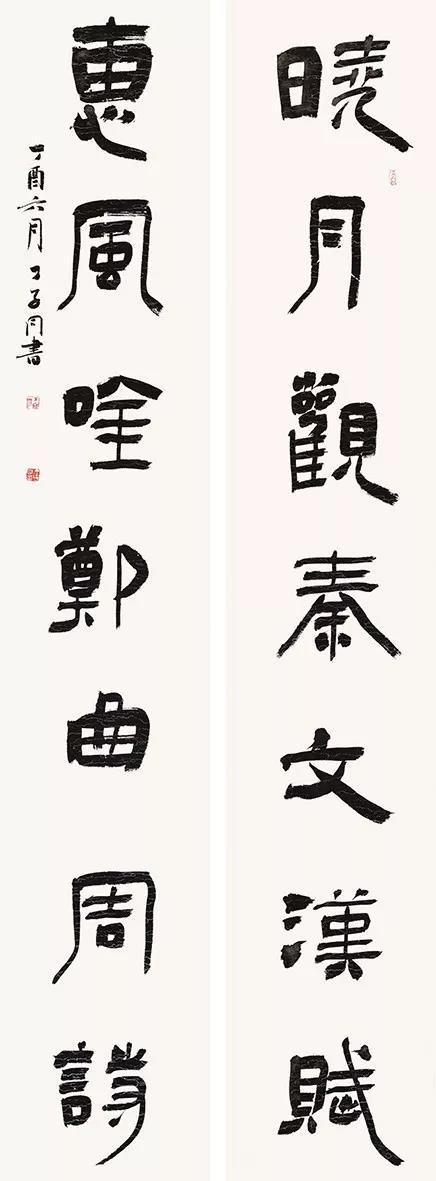 曉月觀秦文漢賦
惠風唫鄭曲周詩
丁酉六月書